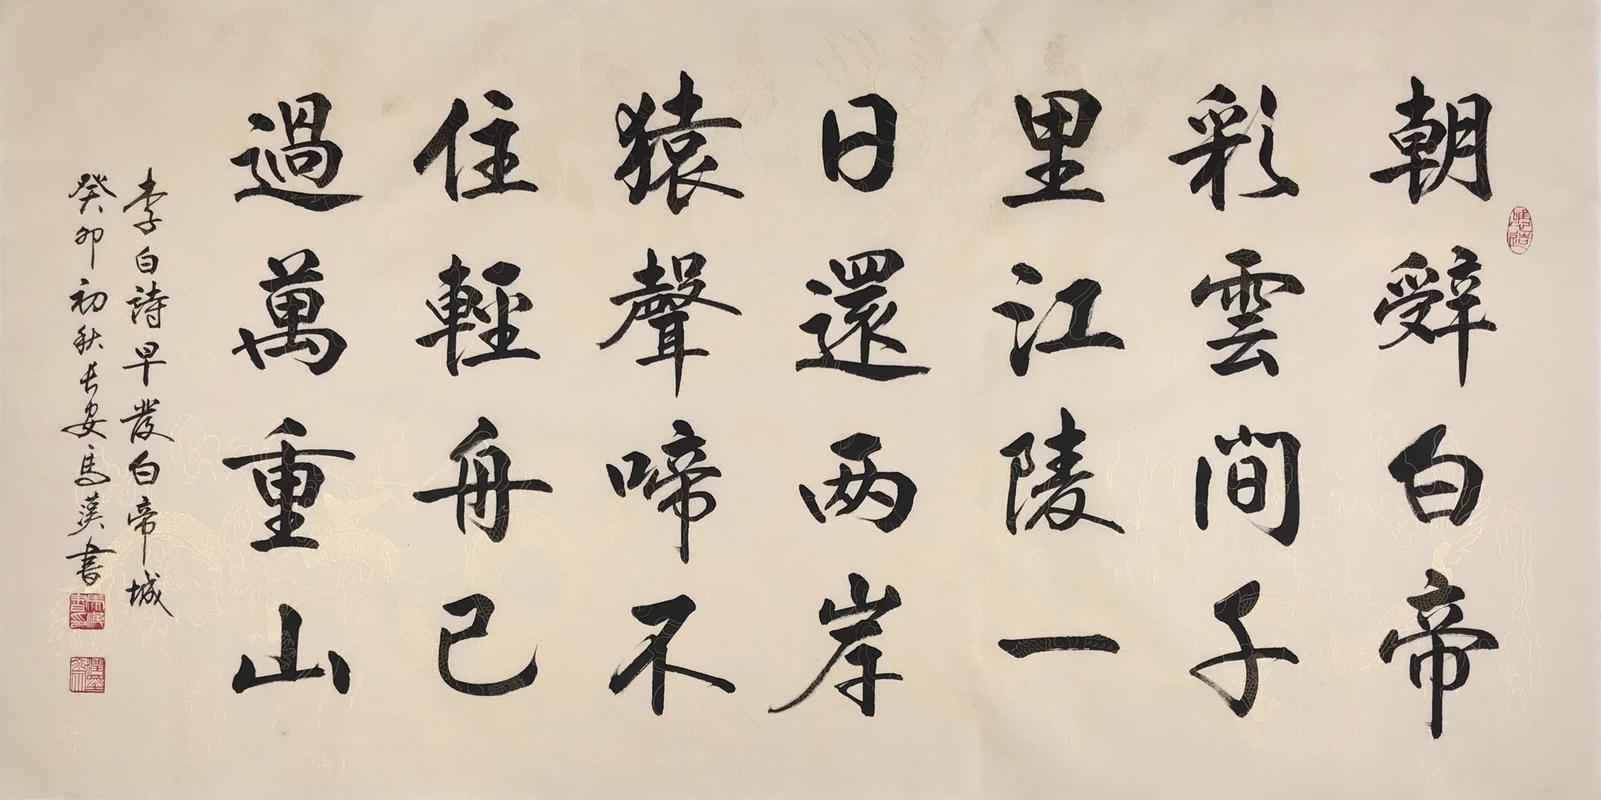 朝辤白帝
彩雲間子
里江陵一
日還两岸
猿聲啼不
住輕舟已
過萬重山
李白詩早發白帝城
癸卯初秋长安馬漢書